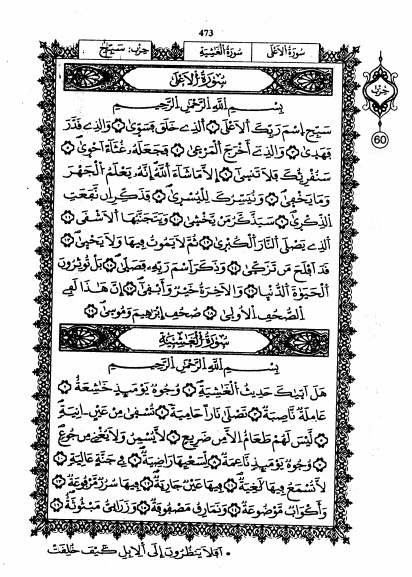 473
سورة الأعلى سورة الغشية حزب: سبح
حزب
60
سورة الأعلى
بسم الله الرحمن الرحيم
سبح اسم ربك الأعلى الذي خلق فسوى والذي قدر
فهدى والذي أخرج المرعى فجعله غثاء احوى
سنقرئك فلا تنسى إلا ما شاء الله إنه يعلم الجهر
وما يخفى ونيسرك لليسرى فذكر ان نفعت
الذكرى سيذكر من يخشى ويتجنبها الأشقى
الذي يصلى النار الكبرى ثم لا يموت فيها ولا يحيى
قد افلح من تزكى وذكر اسم ربه فصلى بل توثرون
الحيوة الدنيا والاخرة خير وأبقى إن هذا لفي
الصحف الأولى صحف إبرهيم وموسى
سورة الغشية
بسم الله الرحمن الرحيم
هل اتيك حديث الغشية وجوه يومئذ خشعة
عاملة ناصبة تصلى نارا حامية تسقى من عين انية
ليس لهم طعام الا من ضريع لا يسمن ولا يغني من جوع
وجوه يومئذ ناعمة لسعيها راضية في جنة عالية
لا تسمع فيها لغية فيها عين جارية فيها سرر مرفوعة
وأكواب موضوعة ونمارق مصفوفة وزرابي مبثوثة
افلا ينظرون إلى الابل كيف خلقت